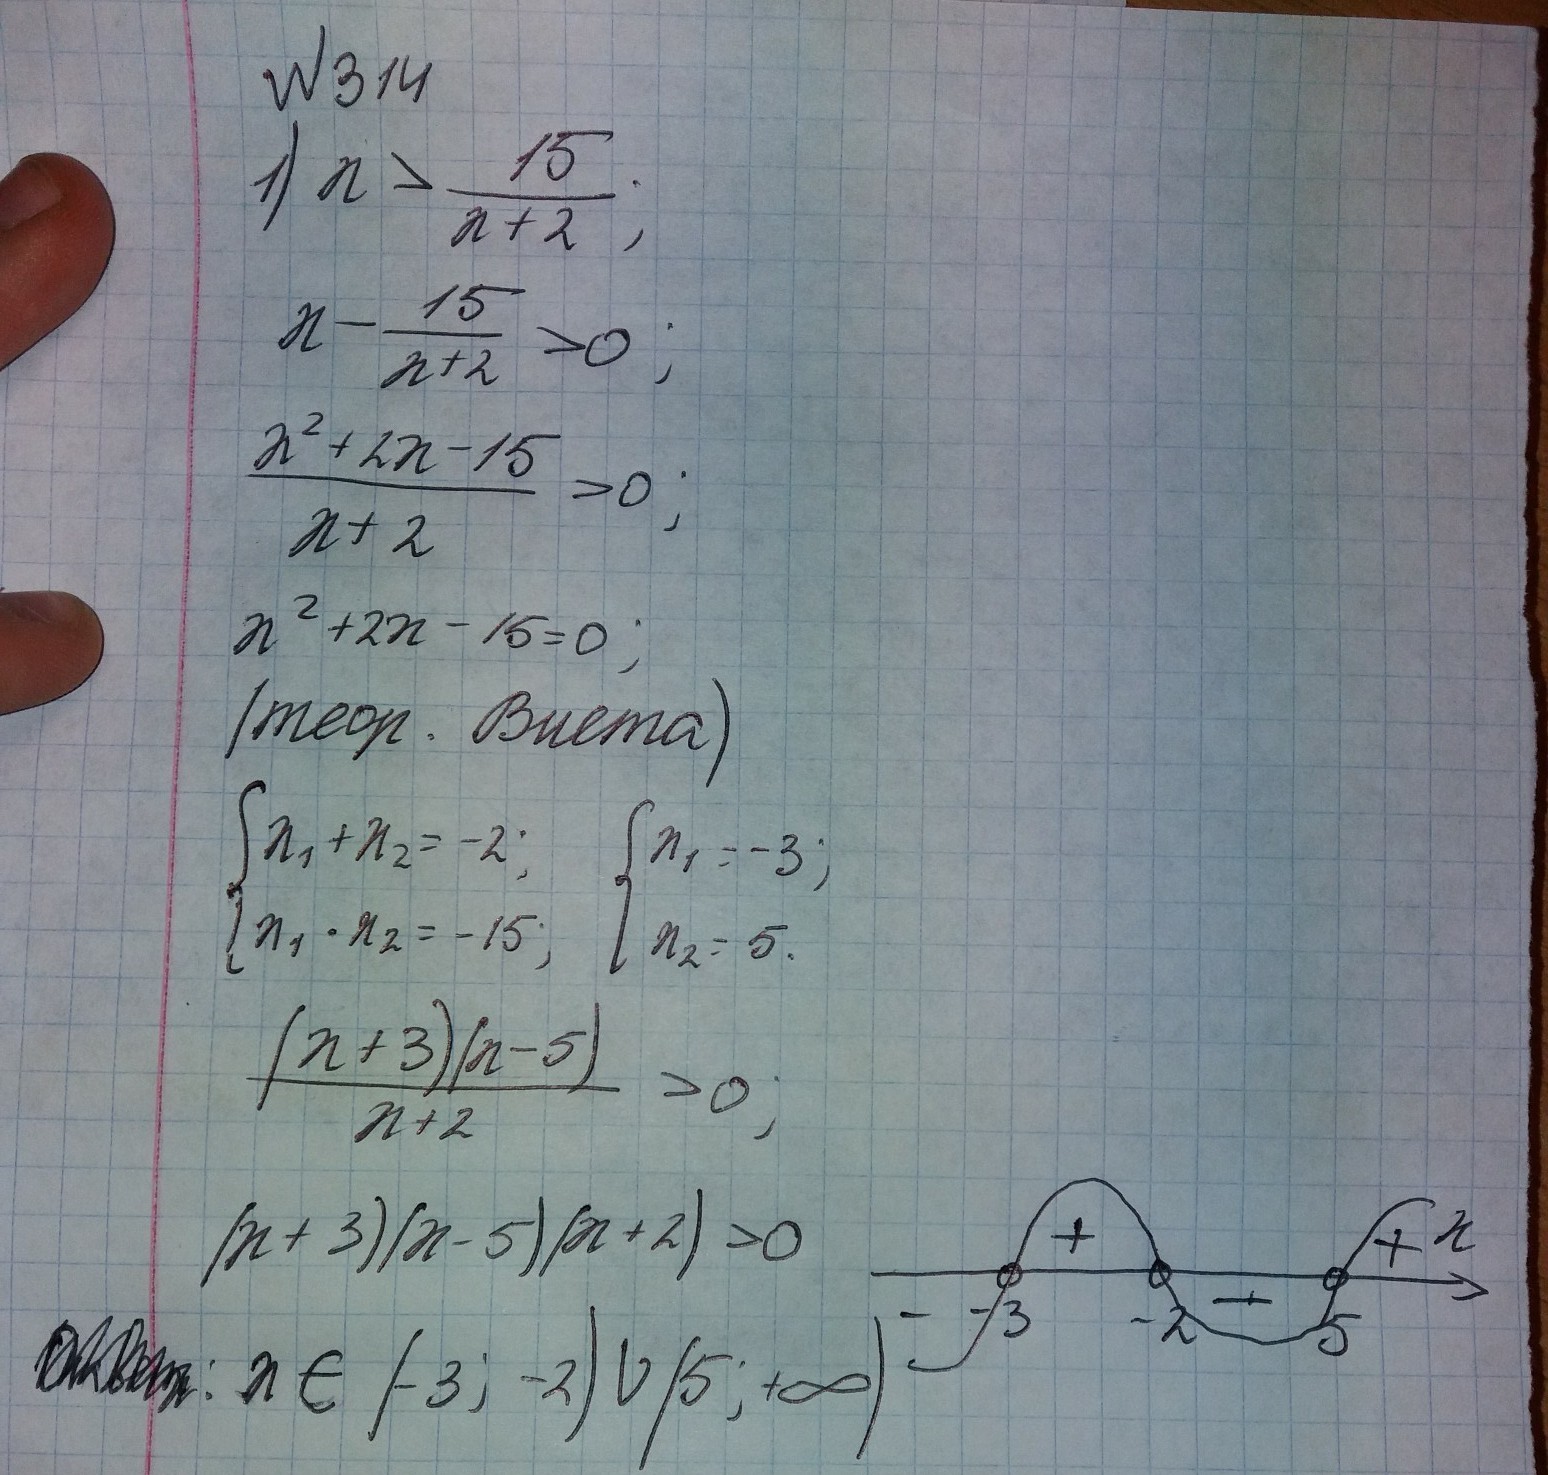 №314
1) x > 15/(x+2);
x - 15/(x+2) >0;
(x²+2x-15)/(x+2) >0;
x²+2x-15=0;
(теор. Виета)
{x₁+x₂=-2; {x₁=-3;
{x₁·x₂=-15; {x₂=5.
((x+3)(x-5))/(x+2) >0;
(x+3)(x-5)(x+2)>0
+ + x
- -3 -2 - 5
Ответ: x∈(-3; -2)∪(5; +∞)